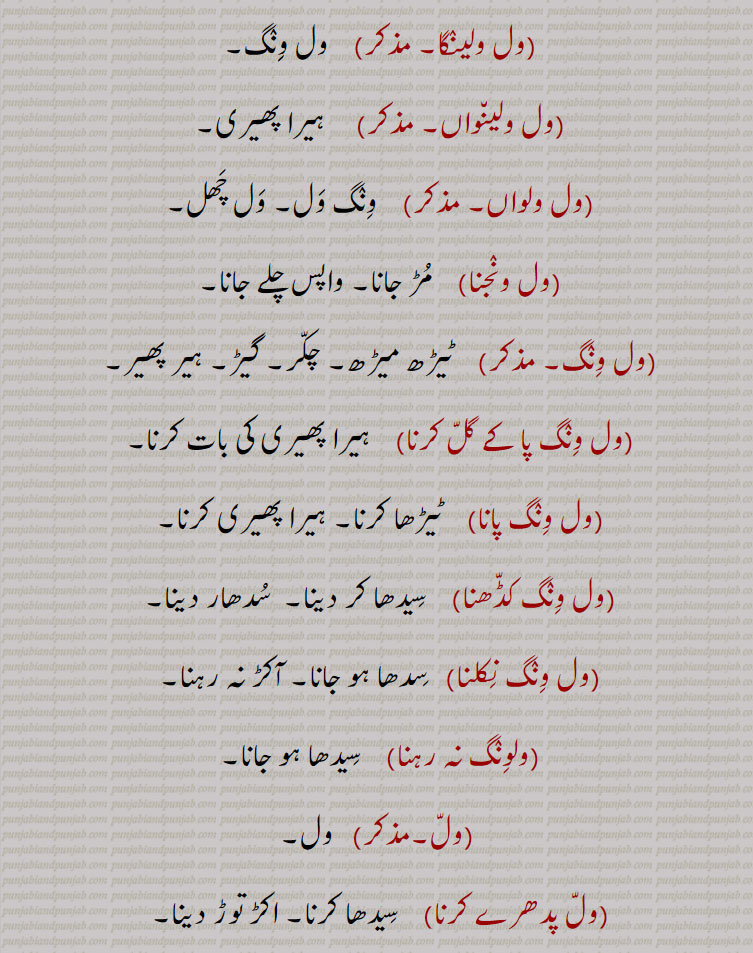 (ول ولینٛگا۔ مذکر) ول وِنٛگ۔
(ول ولینّواں۔ مذکر) ہیرا پھیری۔
(ول ولواں۔ مذکر) وِنٛگ وَل۔ وَل چَھل۔
(ول ونٛجنا) مُڑ جانا۔ واپس چلے جانا۔
(ول وِنٛگ۔ مذکر) ٹیڑھ میڑھ۔ چکّر۔ گیڑ۔ ہیر پھیر۔
(ول وِنٛگ پا کے گلّ کرنا) ہیرا پھیری کی بات کرنا۔
(ول وِنٛگ پانا) ٹیڑھا کرنا۔ ہیرا پھیری کرنا۔
(ول وِنٛگ کڈّھنا) سِیدھا کر دینا۔ سُدھار دینا۔
(ول وِنٛگ نِکلنا) سِدھا ہو جانا۔ آکڑ نہ رہنا۔
(ولوِنٛگ نہ رہنا) سِیدھا ہو جانا۔
(ولّ۔مذکر) ول۔
(ولّ پدھرے کرنا) سِیدھا کرنا۔ اکڑ توڑ دینا۔